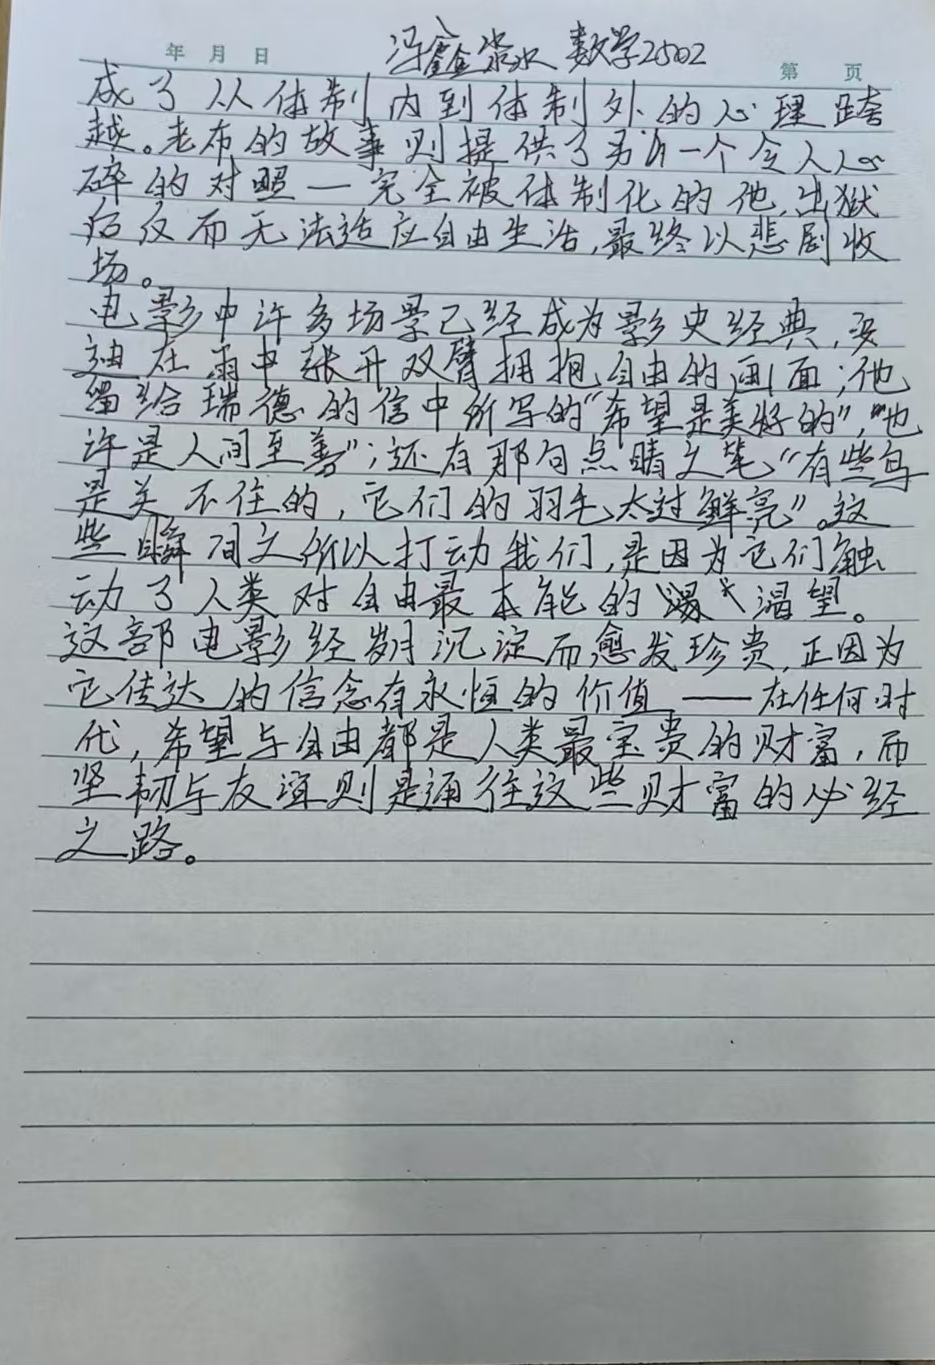 年 月 日
冯鑫淼 数学2502
第 页
成了从体制内到体制外的心理跨
越。老布的故事则提供了另一个令人心
碎的对照—完全被体制化的他,出狱
后反而无法适应自由生活,最终以悲剧收
场。
电影中许多场景已经成为影史经典,安
迪在雨中张开双臂拥抱自由的画面;他
留给瑞德的信中所写的“希望是美好的”,“也
许是人间至善”;还有那句点睛之笔“有些鸟
是关不住的,它们的羽毛太过鲜亮”。这
些瞬间之所以打动我们,是因为它们触
动了人类对自由最本能的渴望。
这部电影经岁月沉淀而愈发珍贵,正因为
它传达的信念有永恒的价值——在任何时
代,希望与自由都是人类最宝贵的财富,而
坚韧与友谊则是通往这些财富的必经
之路。